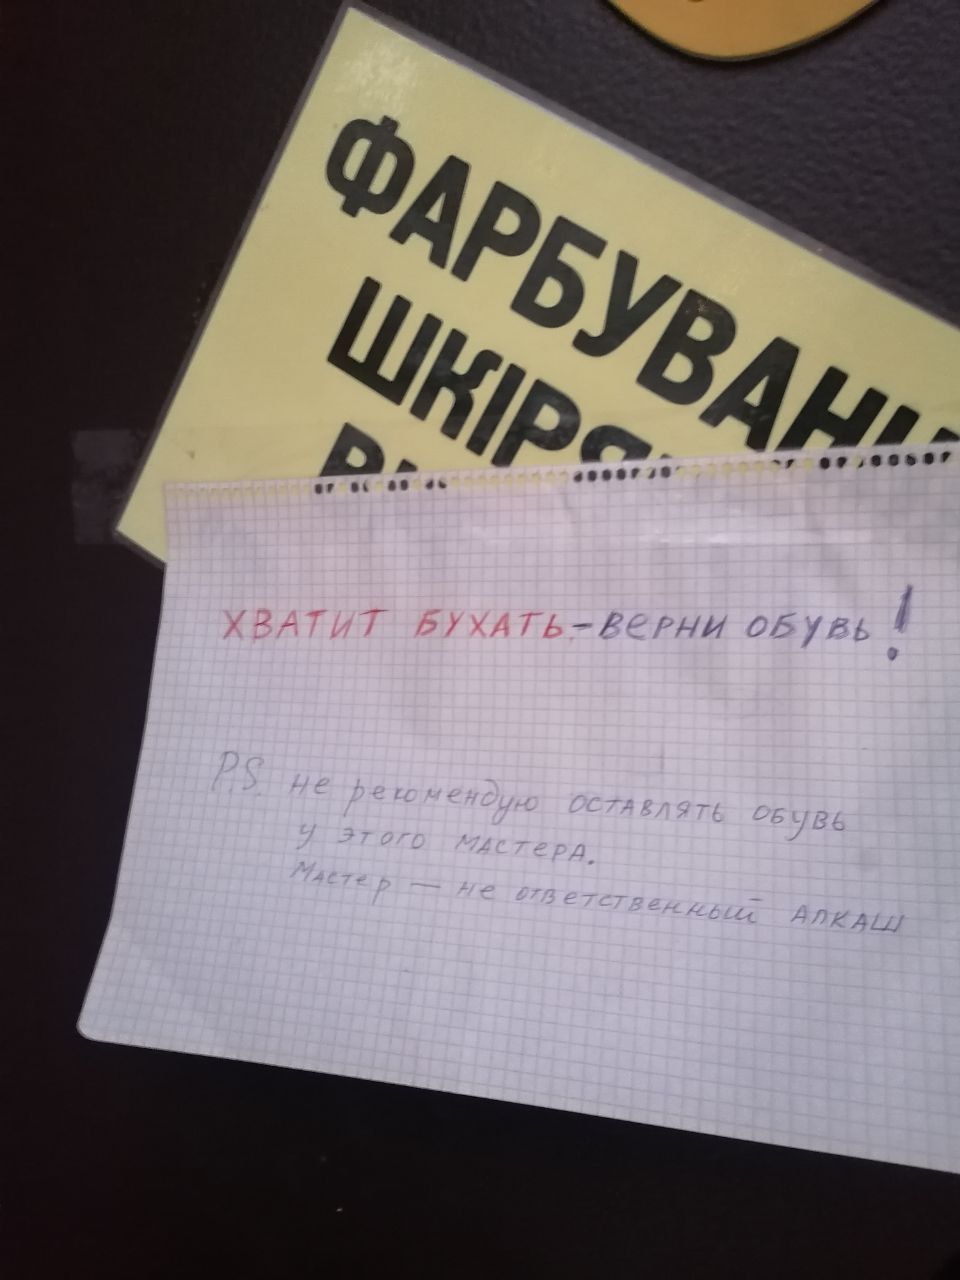 ФАРБУВАНН
ШКІРЯ
ХВАТИТ БУХАТЬ-ВЕРНИ ОБУВЬ!
P.S. не рекомендую оставлять обувь
у этого мастера.
Мастер — не ответственный АЛКАШ